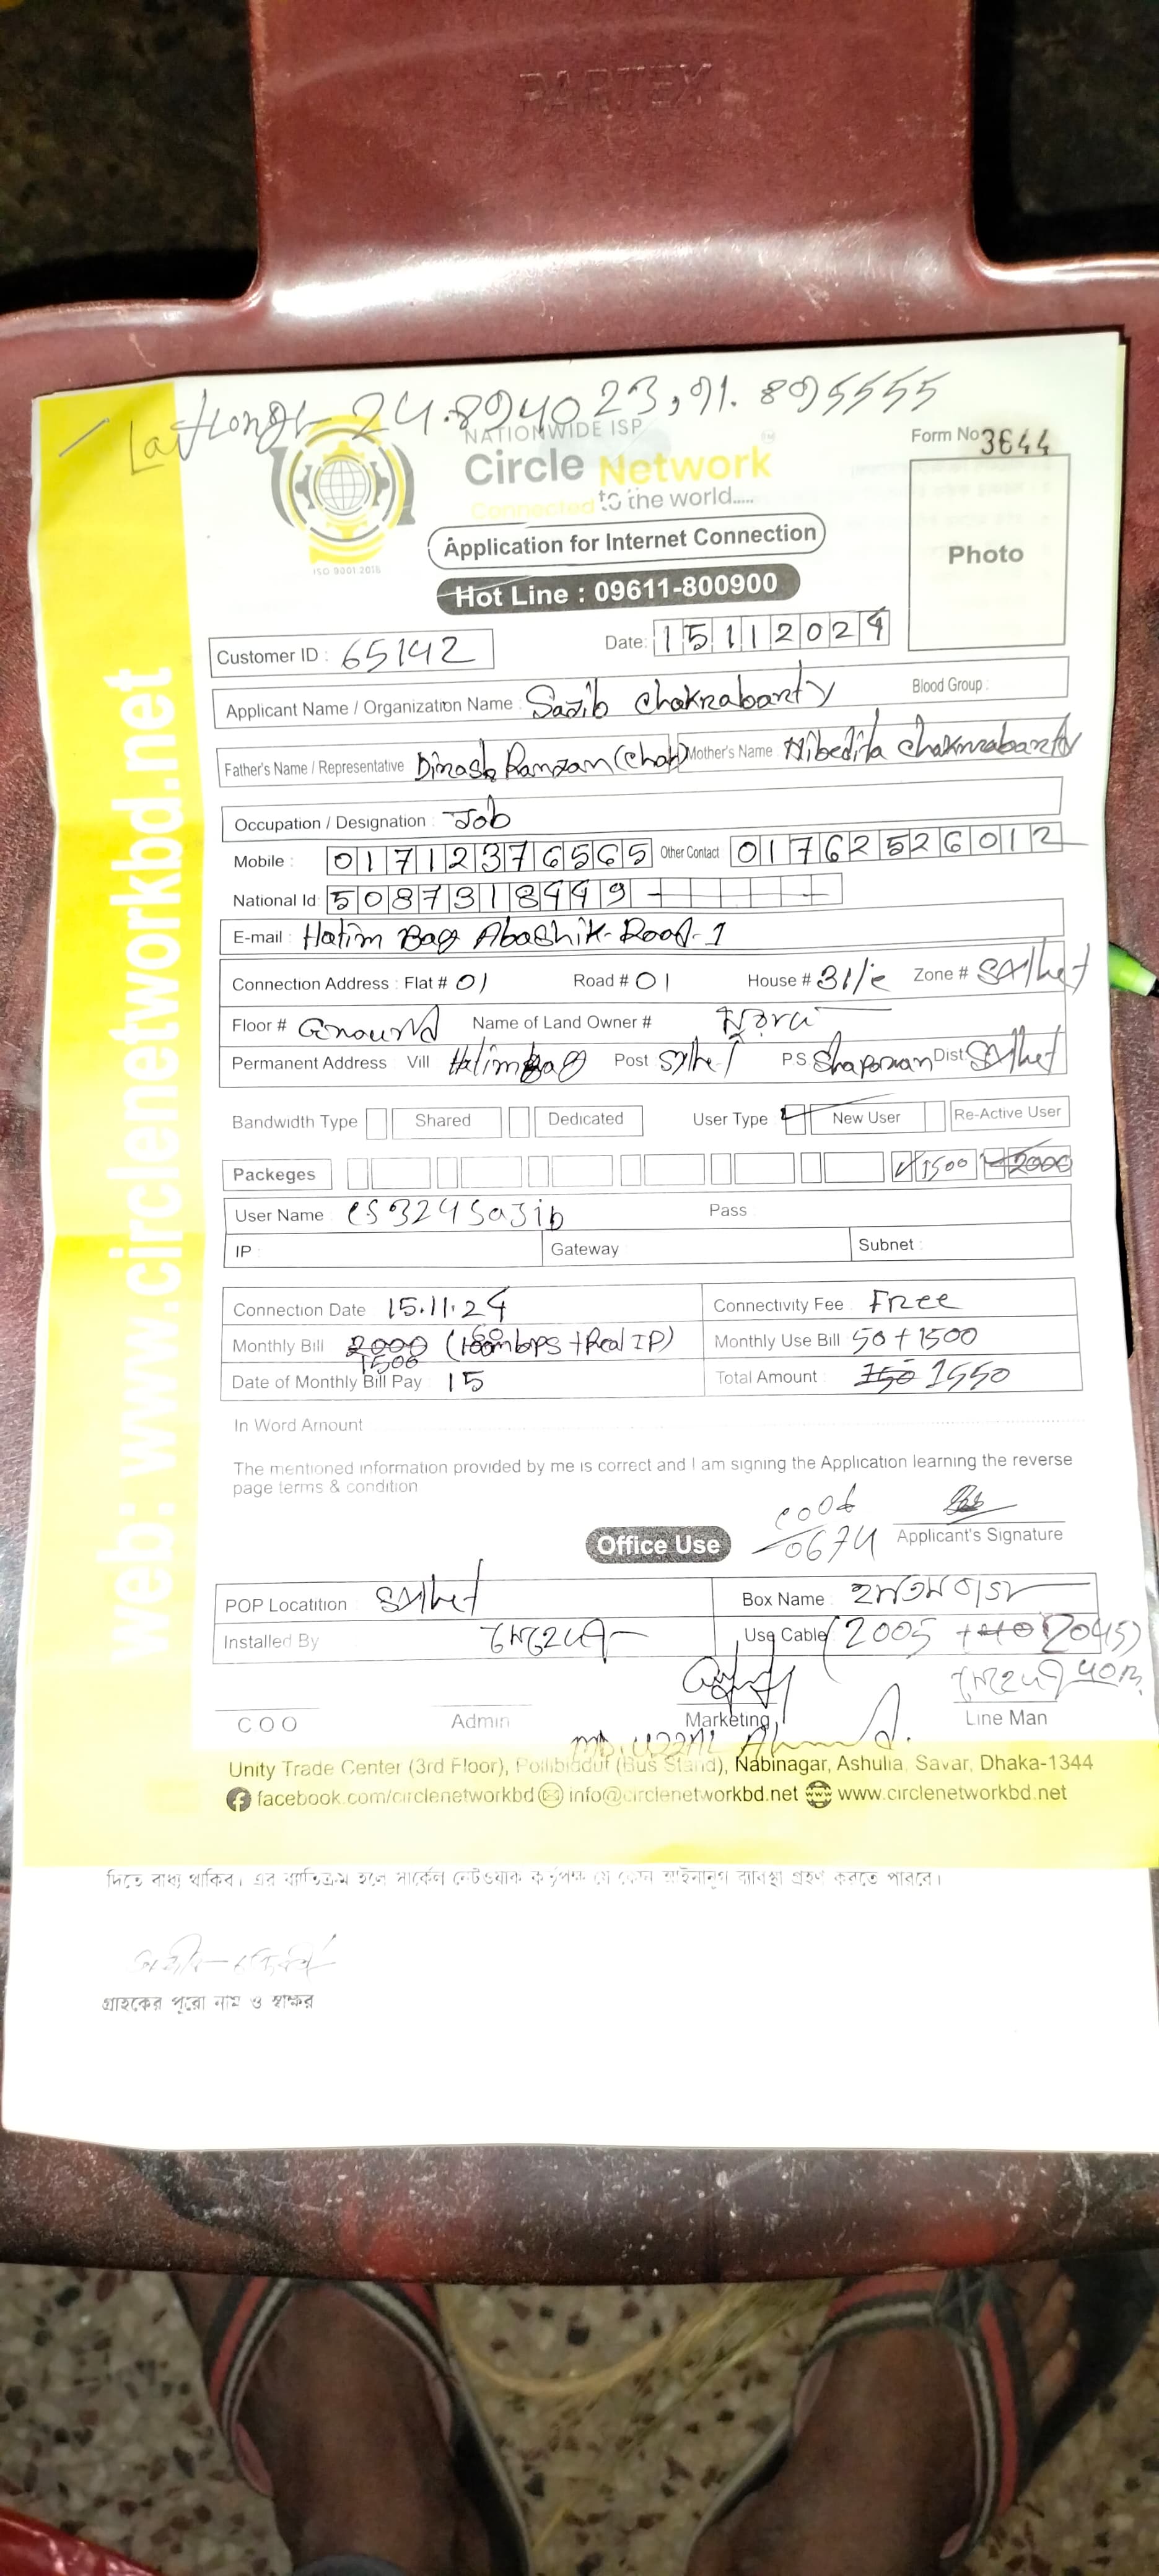 PARTEX
Lat Long- 24.894023, 91.895555
NATIONWIDE ISP
Circle Network
Connected to the world.....
ISO 9001:2015
Form No 3644
Photo
Application for Internet Connection
Hot Line : 09611-800900
Customer ID : 65142 Date: 15112024
Applicant Name / Organization Name : Sajib Chakrabanty Blood Group :
Father's Name / Representative Dinash Ranzan (Chak) Mother's Name : Nibedita Chakmrabanty
Occupation / Designation : Job
Mobile : 01712376565 Other Contact 01762526012
National Id: 5087318449
E-mail : Hatim Bag Abashik-Road-1
Connection Address : Flat # 01 Road # 01 House # 31/c Zone # Sylhet
Floor # Ground Name of Land Owner #
Permanent Address : Vill Hatimbag Post Sylhet P.S Shaporan Dist: Sylhet
Bandwidth Type Shared Dedicated User Type New User Re-Active User
Packeges 1500 2000
User Name : cs324sajib Pass
IP : Gateway Subnet :
Connection Date 15.11.24 Connectivity Fee : Free
Monthly Bill 2000 1500 (mbps + Real IP) Monthly Use Bill 50 + 1500
Date of Monthly Bill Pay : 15 Total Amount : 150 1550
In Word Amount
The mentioned information provided by me is correct and I am signing the Application learning the reverse
page terms & condition
Office Use
Applicant's Signature
POP Locatition : Sylhet Box Name :
Installed By Use Cable (2005 2045)
40m
COO Admin Marketing Line Man
Unity Trade Center (3rd Floor), Pollibiddut (Bus Stand), Nabinagar, Ashulia, Savar, Dhaka-1344
facebook.com/circlenetworkbd info@circlenetworkbd.net www.circlenetworkbd.net
web: www.circlenetworkbd.net
দিতে বাধ্য থাকিব। এর ব্যতিক্রম হলে সার্কেল নেটওয়ার্ক কর্তৃপক্ষ যে কোন আইনানুগ ব্যবস্থা গ্রহণ করতে পারবে।
গ্রাহকের পুরো নাম ও স্বাক্ষর